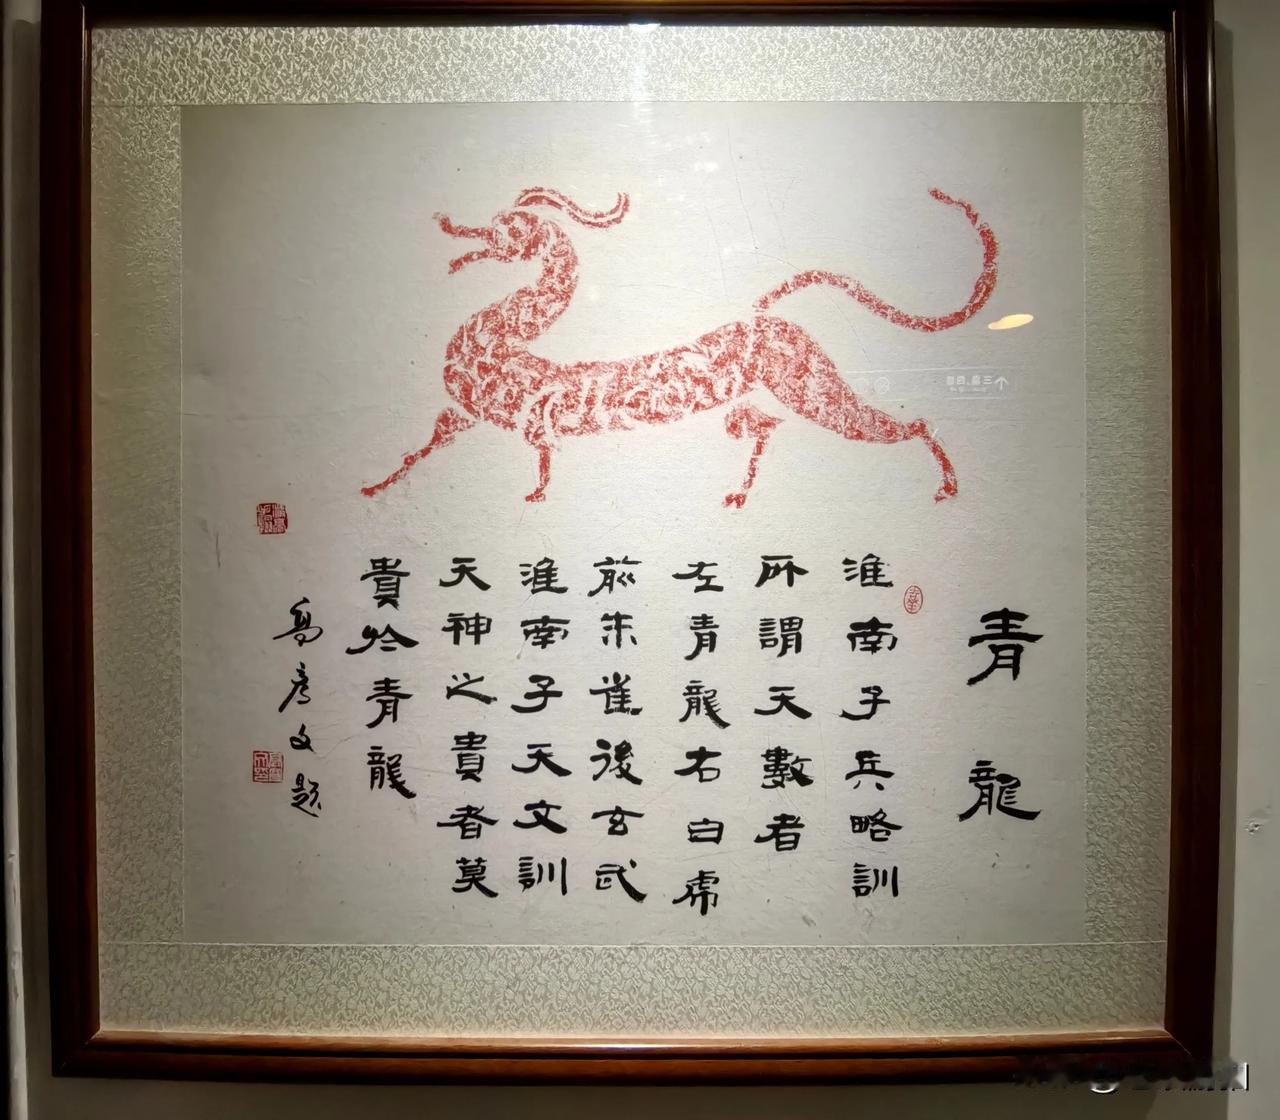 青龍
淮南子兵略訓
所謂天數者
左青龍右白虎
前朱雀後玄武
淮南子天文訓
天神之貴者莫
貴於青龍
高彥文題